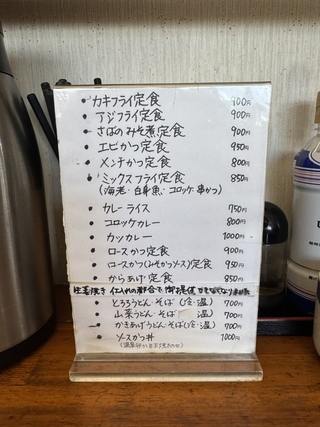 ・カキフライ定食 900円
・アジフライ定食 900円
・さばのみそ煮定食 900円
・エビかつ定食 950円
・メンチかつ定食 800円
・ミックスフライ定食 850円
(海老・白身魚・コロッケ・串かつ)
・カレーライス 750円
・コロッケカレー 800円
・カツカレー 1000円
・ロースかつ定食 900円
・ロースかつ(みそかつソース)定食 950円
・からあげ定食 850円
生姜焼き 仕入れの都合で御提供できなくなりました
・とろろうどん・そば(冷・温) 700円
・山菜うどん・そば 温) 700円
・かきあげうどん・そば(冷・温) 700円
・ソースかつ丼 1000円